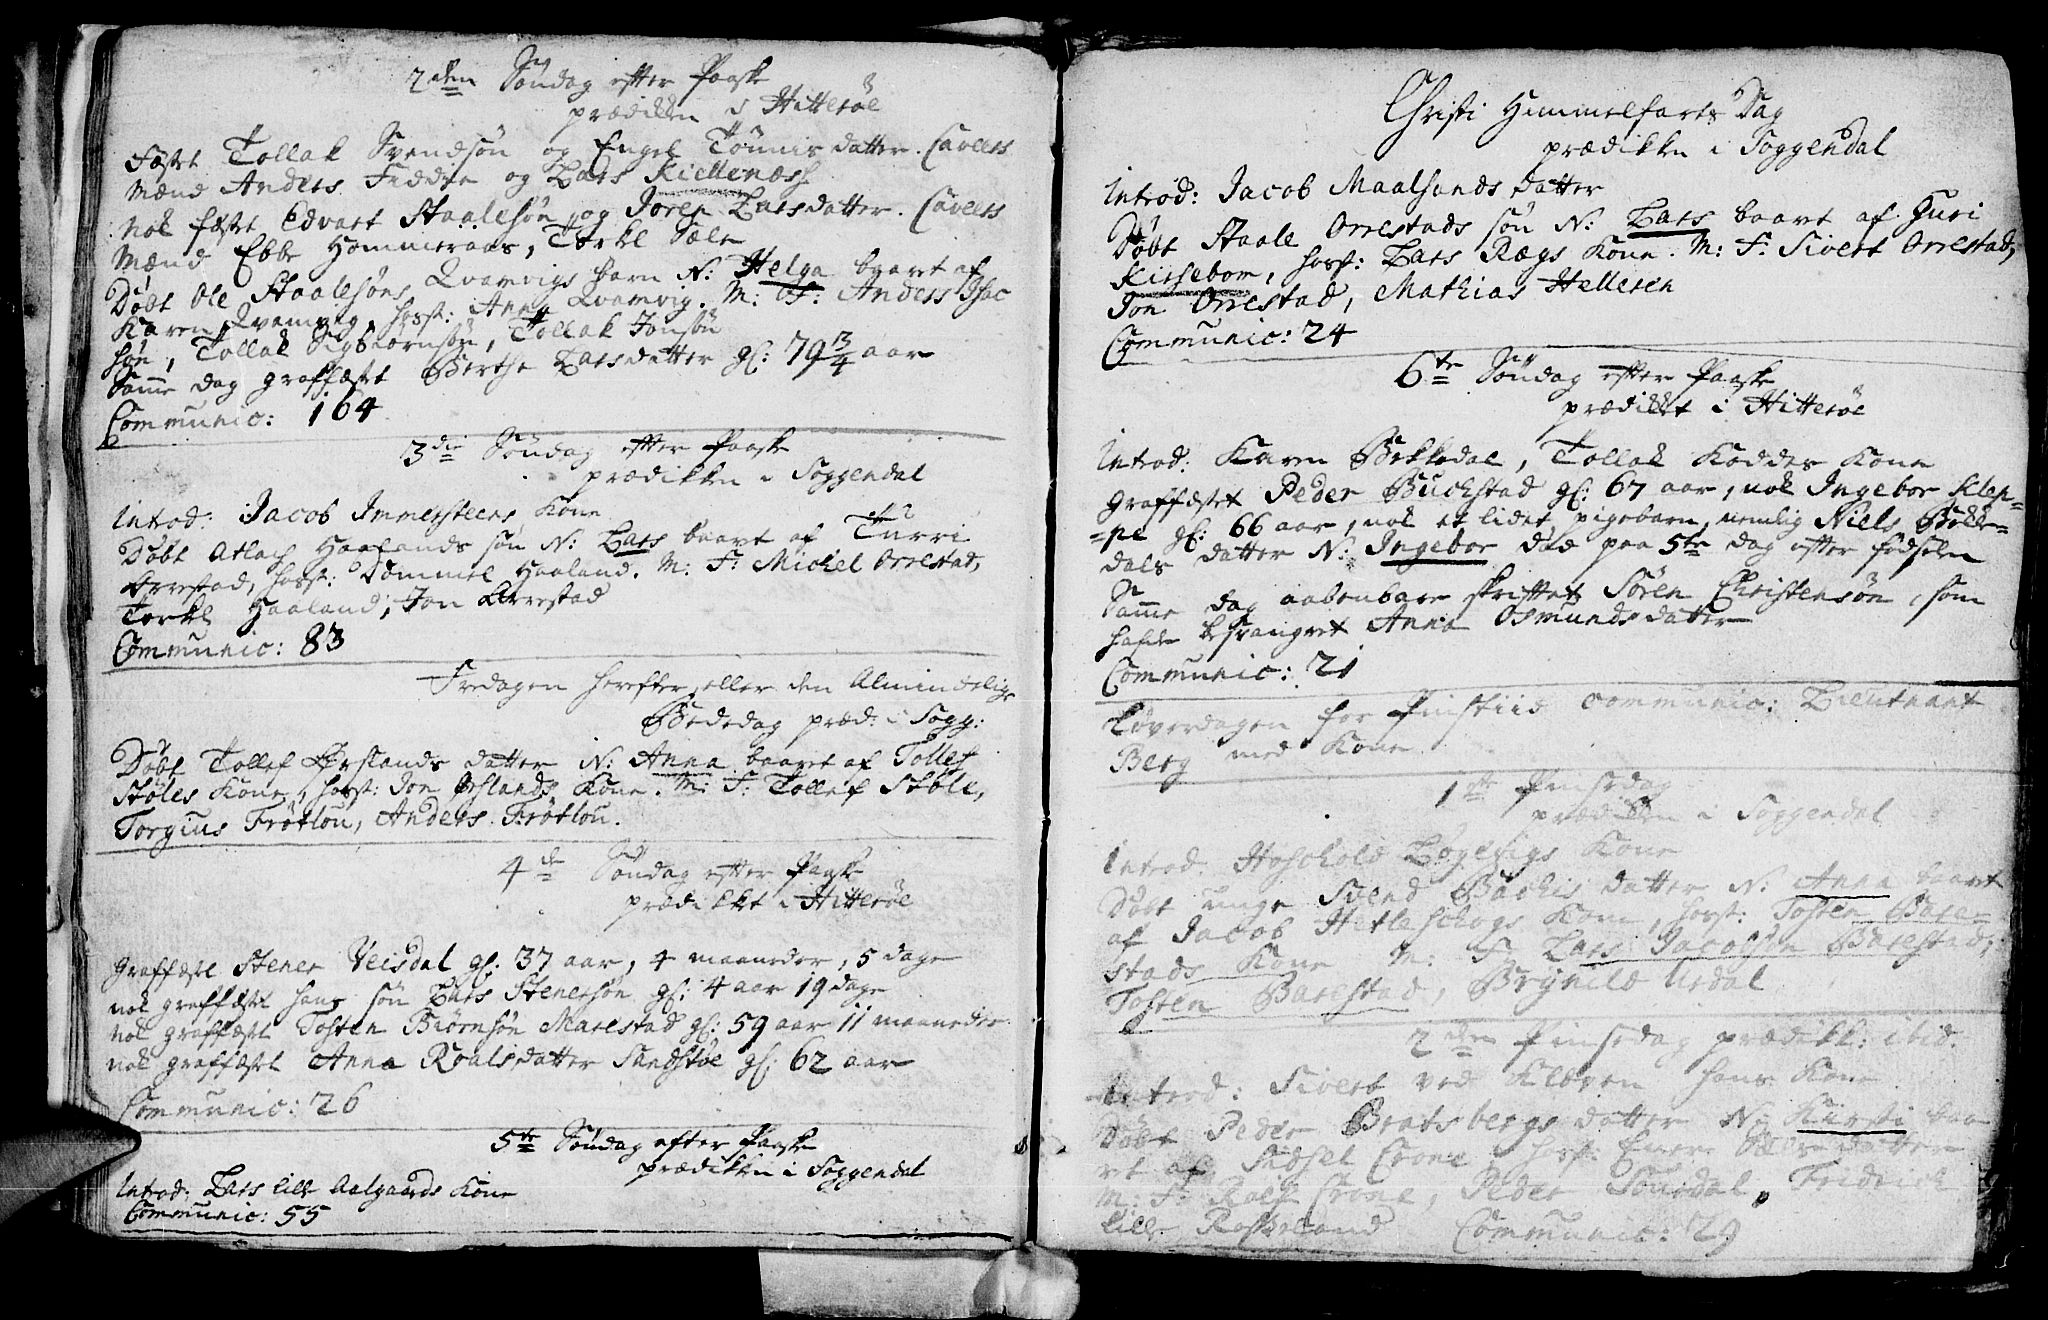 2den Søndag efter Paaske
prædikken i Hitterøe
Fæstet Tollak Svendsøn og Engel Tønnis datter. Caveers
Mænd Anders Fedde og Lars Kiellenæsh
nok fæstet Edvart Staalesøn og Joren Larsdatter. Caveers
Mænd Ebbe Hammeraas, Torkel Sæle
Døbt Ole Staalesøns Qvamvigs barn N: Helga baaret af
Karen Qvamvig, hosst: Anna Qvamvig. M: F: Anders Isac
søn, Tollak Sigbiørnsøn, Tollak Jonsøn
Samme dag graffæstet Berthe Larsdatter gl: 79 3/4 aar
Communic: 164
3die Søndag efter Paaske
prædikken i Soggendal
Introd: Jacob Immersteens Kone
Døbt Atlach Haalands søn N: Lars baaret af Turri
Orrestad, hosst: Dommel Haaland. M: F: Michel Orrestad,
Torkel Haaland, Jon Orrestad
Communic: 83
Fredagen herefter, eller den Almindelige
Bededag præd: i Sogg:
Døbt Tollef Ørslands datter N: Anna baaret af Tollef
Støles Kone, hosst: Jon Ørslands Kone. M: F: Tollef Støle,
Torgius Frøtlou, Anders Frøtlou.
4de Søndag efter Paaske
prædikket i Hitterøe
Graffæstet Stener Veisdal gl: 37 aar, 4 maaneder, 5 dage
nok graffæstet hans søn Lars Stenersøn gl: 4 aar 19 dage
nok graffæstet Tosten Biørnsøn Marestad gl: 59 aar 11 maaneder
nok graffæstet Anna Roalsdatter Sandstøe gl: 62 aar
Communic: 26
5te Søndag efter Paaske
prædikken i Soggendal
Introd: Lars lille Aalgaards Kone
Communic: 55
Christi Himmelfarts Dag
prædikken i Soggendal
Introd: Jacob Maalsands datter
Døbt Staale Orrestads søn N: Lars baaret af Guri
Kirsebom, hosst: Lars Rægs Kone. M: F: Sivert Orrestad,
Jon Orrestad, Mathias Helleren
Communic: 24
6te Søndag efter Paaske
prædikket i Hitterøe
Introd: Karen Bekkedal, Tollak Koddes Kone
Graffæstet Peder Buckstad gl: 67 aar, nok Ingebor Klep-
=pe gl: 66 aar, nok et lidet pigebarn, nemlig Niels Bekke-
dals datter N: Ingebor død paa 5te dag efter fødselen
Samme dag aabenbare skriftet Søren Christensøn, som
hafde besvangret Anna Osmundsdatter
Communic: 21
Løverdagen for Pinstiid communic: Lieutnant
Berg med Kone
1ste Pinsedag
prædikken i Soggendal
Introd. Hoschold Løgevigs Kone
Døbt unge Svend Bachis datter N: Anna baaret
af Jacob Hetleschogs Kone, hosst: Tosten Bare-
stads Kone M: F: Lars Jacobsøn Barestad,
Tosten Barestad, Brynild Urdal
2den Pinsedag prædikk: ibid.
Introd: Sivert ved Kløven hans Kone
Døbt Peder Bratsbergs datter N: Kirsti baa
ret af Sidsel Crone hosst: datter
M: F: Ralf Crone, Peder Tousdal, Fridrich
lille Roskeland Communic: 29